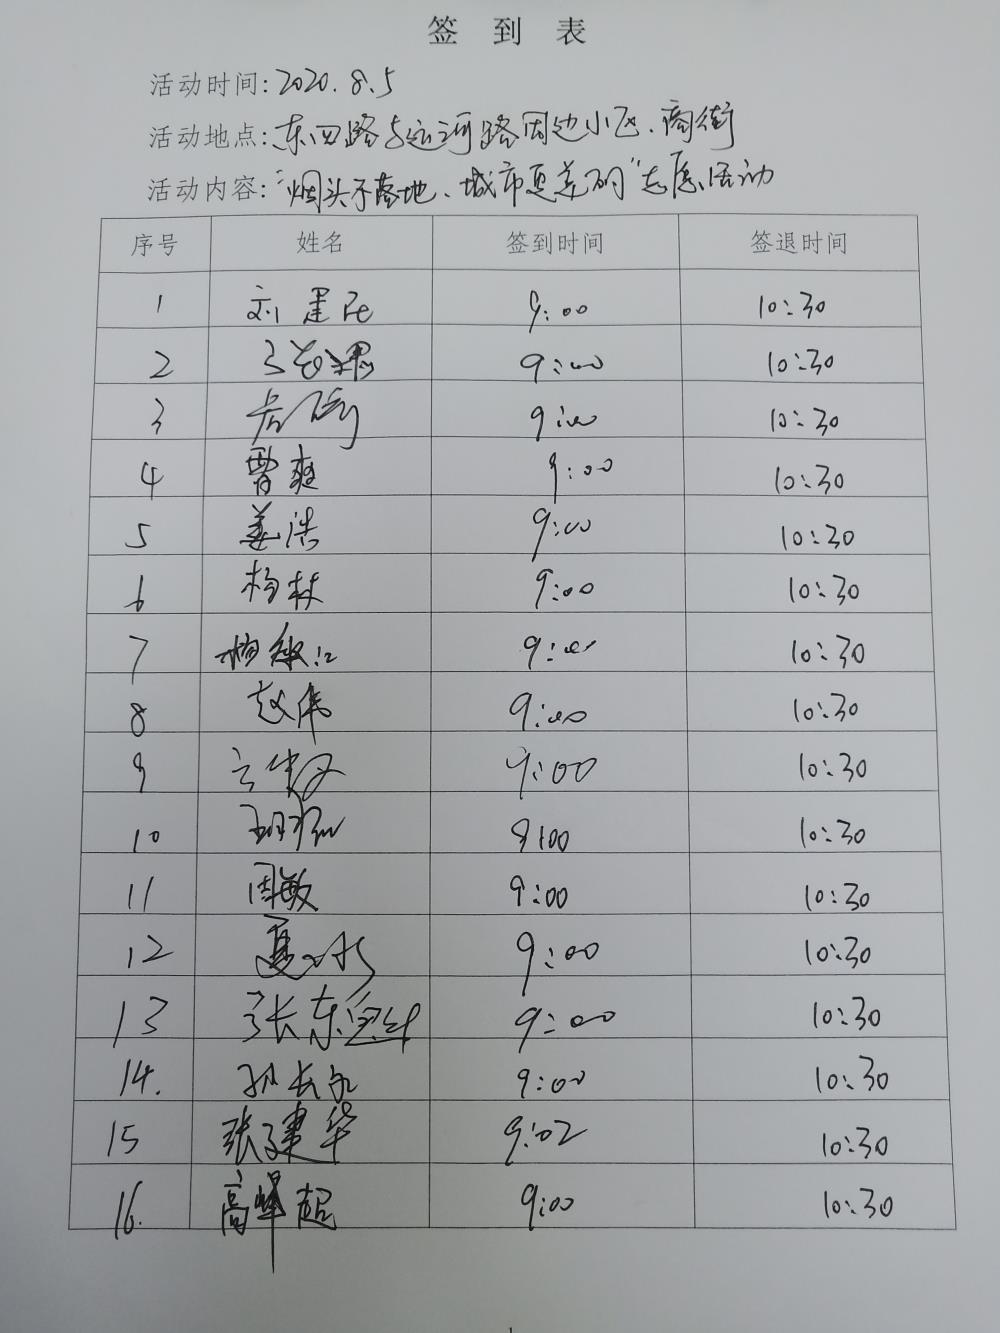 签到表
活动时间:2020.8.5
活动地点:东四路与运河路周边小区、商街
活动内容:"烟头不落地、城市更美丽"志愿活动
序号 姓名 签到时间 签退时间
1 刘建民 9:00 10:30
2 9:00 10:30
3 9:00 10:30
4 曹爽 9:00 10:30
5 姜浩 9:00 10:30
6 杨林 9:00 10:30
7 杨敏江 9:00 10:30
8 赵伟 9:00 10:30
9 9:00 10:30
10 9:00 10:30
11 周敏 9:00 10:30
12 夏冰 9:00 10:30
13 张东 9:00 10:30
14. 孙长永 9:00 10:30
15 张建华 9:02 10:30
16. 高峰超 9:00 10:30